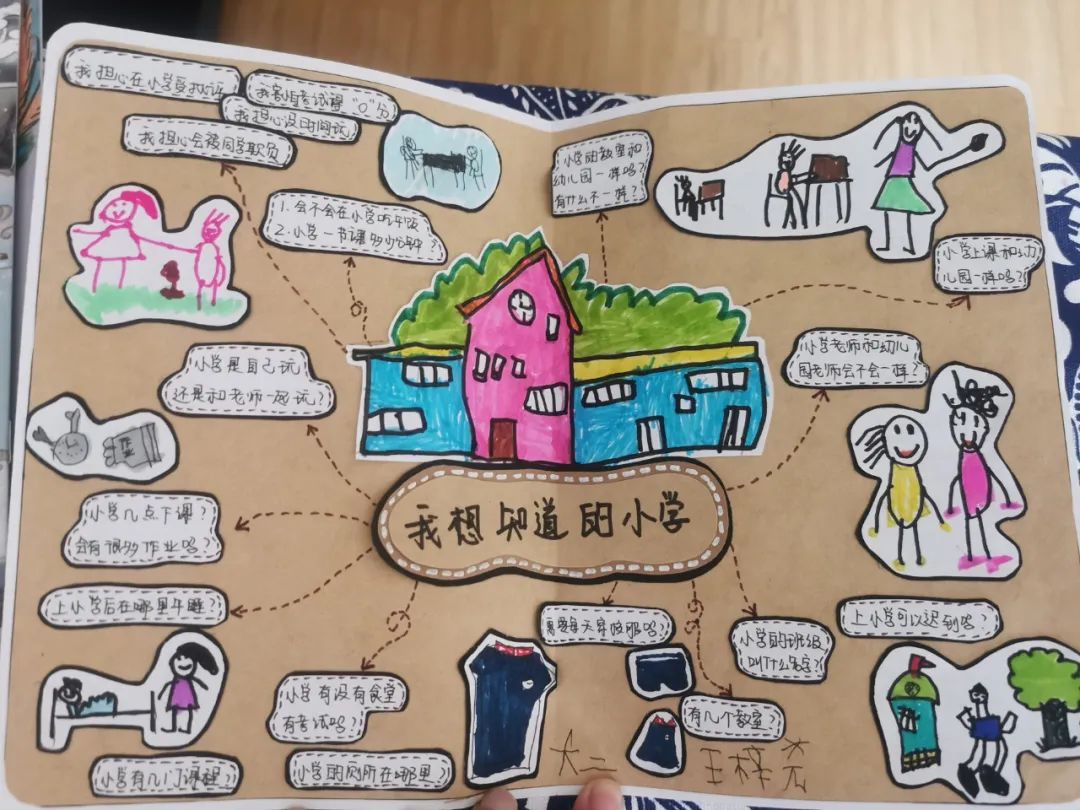 我担心在小学受批评
我害怕考试得“0”分
我担心没时间玩
我担心会被同学欺负
1.会不会在小学吃午饭
2.小学一节课多少分钟?
小学的教室和
幼儿园一样吗?
有什么不一样?
小学上课和幼
儿园一样吗?
小学是自己玩
还是和老师一起玩?
小学老师和幼儿
园老师会不会一样?
我想知道的小学
小学几点下课?
会有很多作业吗?
上小学后在哪里午睡?
小学有没有食堂
有考试吗?
小学有几门课程?
小学的厕所在哪里?
需要每天穿校服吗?
小学的班级
叫什么名字?
有几个教室?
上小学可以迟到吗?
大二
王梓